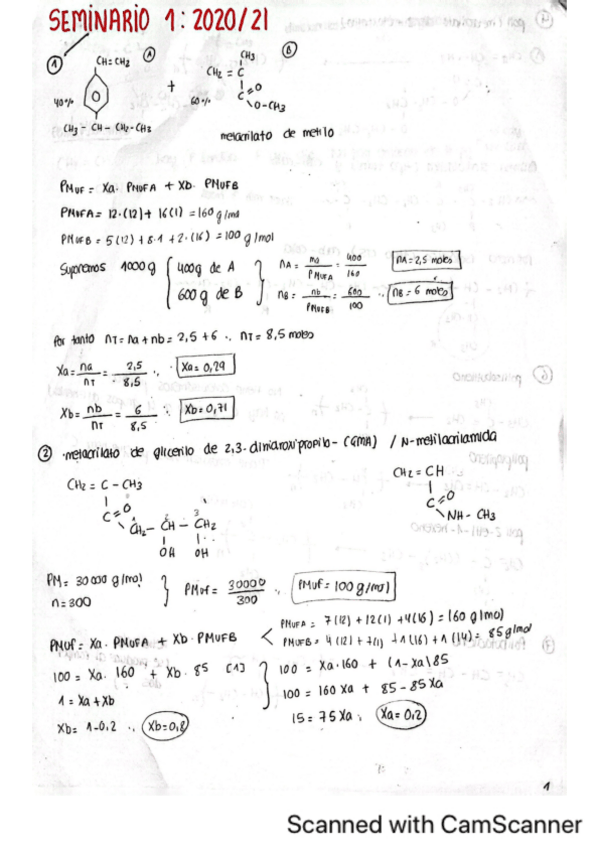 SEMINARIO 1: 2020/21
① CH=CH2 Ⓐ
40%
CH3 - CH - CH2 - CH3
+
60%
CH3 Ⓑ
CH2 = C
C=O
O-CH3
metacrilato de metilo
PMUF = Xa. PMUFA + Xb. PMUFB
PMUFA = 12.(12) + 16(1) = 160 g/mol
PMUFB = 5(12) + 8.1 + 2.(16) = 100 g/mol
Suponemos 1000g { 400g de A
600g de B }
nA = ma/PMUFA = 400/160 nA = 2,5 moles
nB = nb/PMUFB = 600/100 ∴ nB = 6 moles
Por tanto nT = na + nb = 2,5 + 6 ∴ nT = 8,5 moles
Xa = na/nT = 2,5/8,5 ∴ Xa = 0,29
Xb = nb/nT = 6/8,5 ∴ Xb = 0,71
② metacrilato de glicerilo de 2,3- - (GMA) / N-metilacrilamida
CH2 = C - CH3
C=O
CH2 - CH - CH2
OH OH
CH2 = CH
C=O
NH - CH3
PM = 30000 g/mol
n = 300
PMUF = 30000/300 ∴ PMUF = 100 g/mol
PMUF = Xa. PMUFA + Xb. PMUFB
PMUFA = 7(12) + 12(1) + 4(16) = 160 g/mol
PMUFB = 4(12) + 7(1) + 1(16) + 1(14) = 85 g/mol
100 = Xa. 160 + Xb. 85 (1)
1 = Xa + Xb
Xb = 1-0.2 ∴ Xb = 0,8
100 = Xa.160 + (1-Xa)85
100 = 160 Xa + 85 - 85Xa
15 = 75Xa ∴ Xa = 0,2
1
Scanned with CamScanner